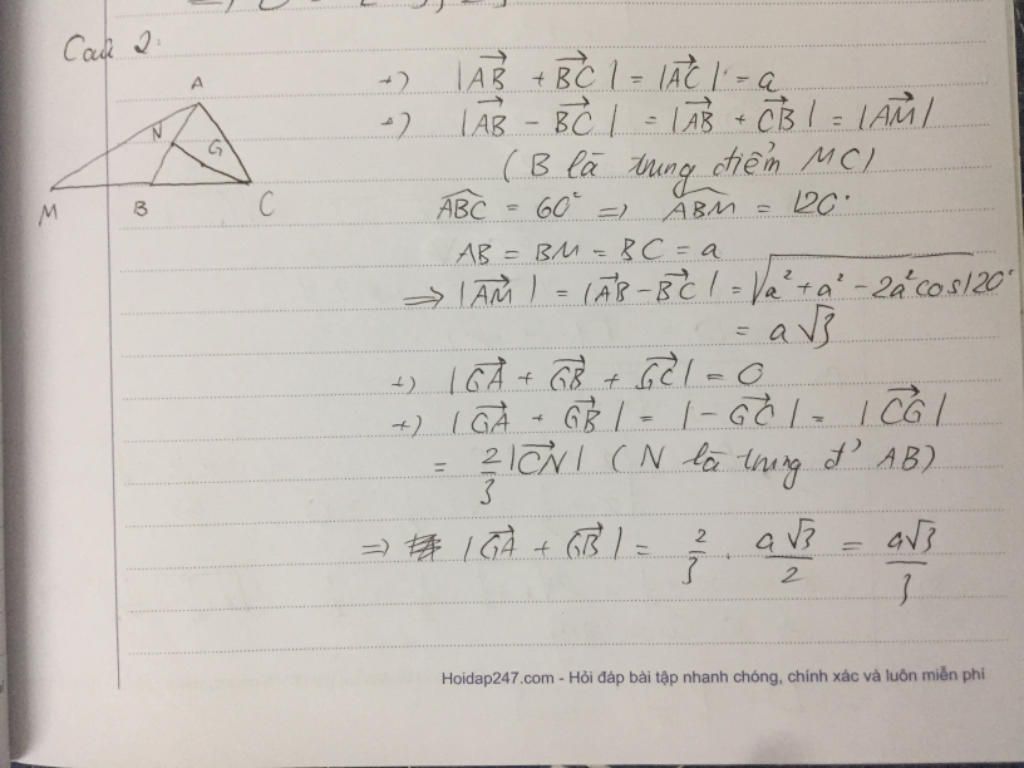 Câu 2:
A
N
G
M B C
+) |AB + BC| = |AC| = a
+) |AB - BC| = |AB + CB| = |AM|
(B là trung điểm MC)
ABC = 60° => ABM = 120°
AB = BM = BC = a
=> |AM| = |AB - BC| = √(a² + a² - 2a²cos120°)
= a√3
+) |GA + GB + GC| = 0
+) |GA + GB| = |-GC| = |CG|
= 2/3 |CN| (N là trung đ' AB)
=> |GA + GB| = 2/3 . a√3/2 = a√3/3
Hoidap247.com - Hỏi đáp bài tập nhanh chóng, chính xác và luôn miễn phí